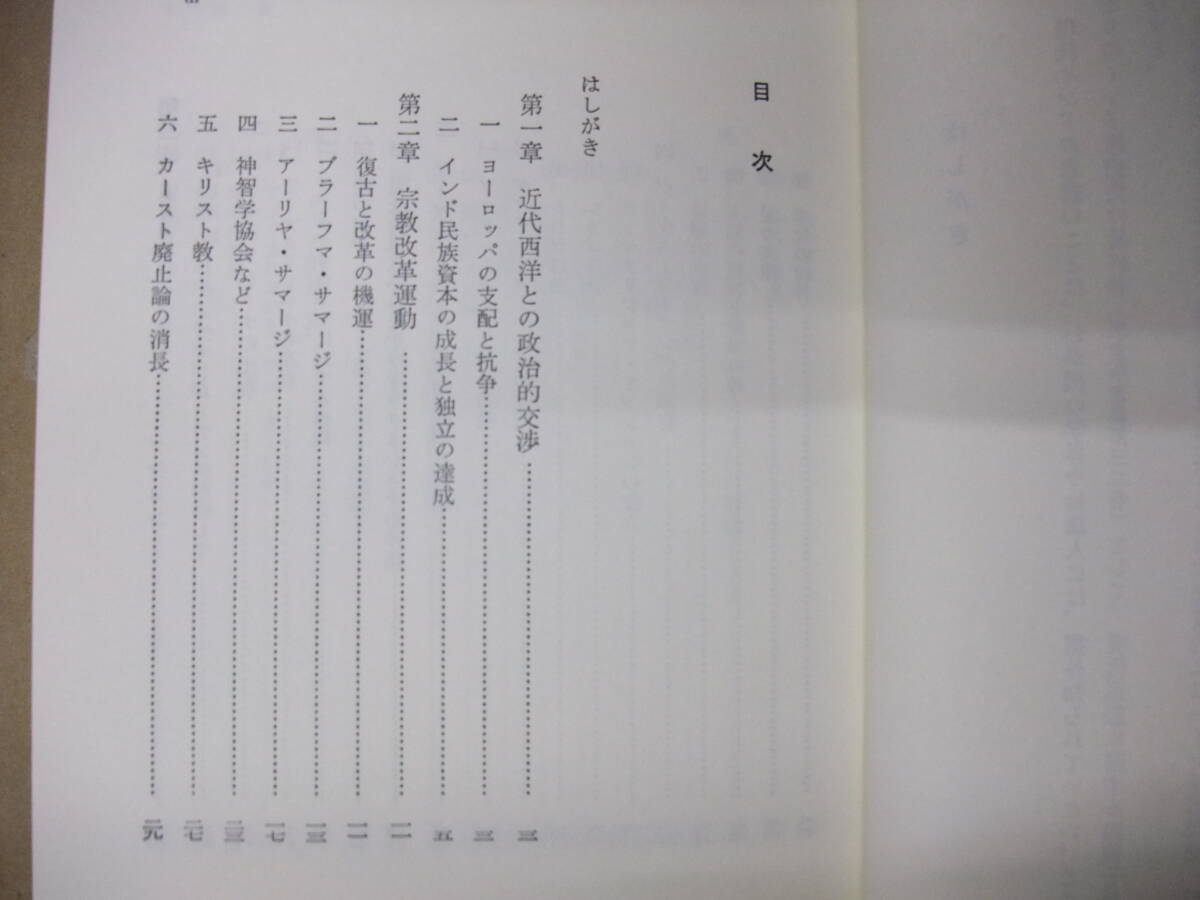 目次
はしがき
第一章　近代西洋との政治的交渉……………………三
一　ヨーロッパの支配と抗争……………………三
二　インド民族資本の成長と独立の達成……………………五
第二章　宗教改革運動……………………一一
一　復古と改革の機運……………………一一
二　ブラーフマ・サマージ……………………一三
三　アーリヤ・サマージ……………………一七
四　神智学協会など……………………二三
五　キリスト教……………………二七
六　カースト廃止論の消長……………………二九